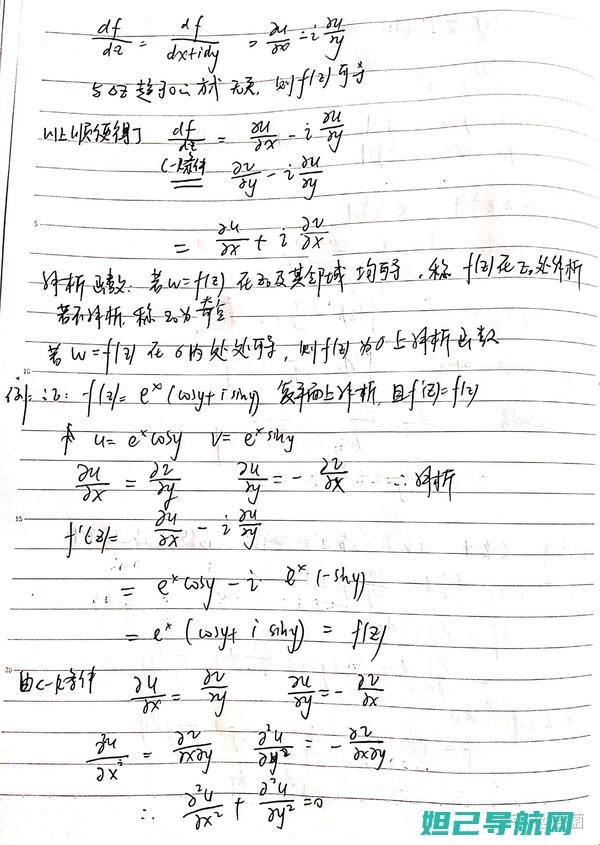 df/dz = df/(dx+idy) = ∂u/∂x - i ∂u/∂y
与Δz趋于0的方式无关, 则f(z)可导
以上顺便得了 df/dz = ∂u/∂x - i ∂u/∂y
C-R条件 ∂v/∂y - i ∂u/∂y
5
= ∂u/∂x + i ∂v/∂x
解析函数: 若w=f(z) 在z₀及其邻域 均可导, 称 f(z)在z₀处解析
若不解析, 称z₀为奇点
若 w=f(z) 在σ内处处可导, 则f(z)为σ上解析函数
10
例: 证: f(z)= eˣ(cosy+i siny) 复平面上解析, 且f'(z)=f(z)
u= eˣcosy v= eˣsiny
∂u/∂x = ∂v/∂y ∂u/∂y = - ∂v/∂x ∴解析
15
f'(z)= ∂u/∂x - i ∂u/∂y
= eˣcosy - i eˣ(-siny)
= eˣ (cosy+ i siny) = f(z)
20
由C-R条件 ∂u/∂x = ∂v/∂y ∂u/∂y = - ∂v/∂x
∂²u/∂x² = ∂v/∂x∂y ∂²u/∂y² = - ∂v/∂x∂y
∴ ∂²u/∂x² + ∂²u/∂y² =0
妲己导航网